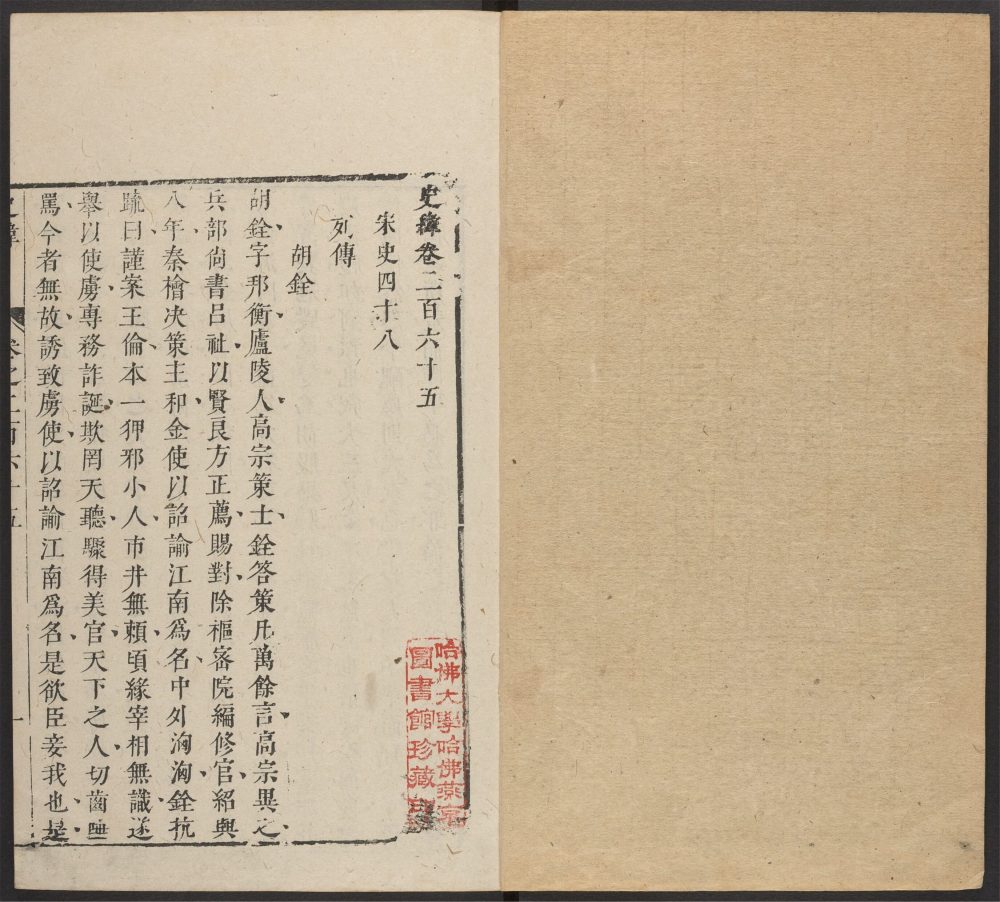 史緯卷二百六十五
宋史四十八
列傳
胡銓
胡銓字邦衡廬陵人高宗策士銓答策凡萬餘言高宗異之
兵部尚書呂祉以賢良方正薦賜對除樞密院編修官紹興
八年秦檜决策主和金使以詔諭江南爲名中外洶洶銓抗
疏曰謹案王倫本一狎邪小人市井無賴頃緣宰相無識遂
舉以使虜專務詐誕欺罔天聽驟得美官天下之人切齒唾
罵今者無故誘致虜使以詔諭江南爲名是欲臣妾我也是
史緯
卷之二百六十五
一
哈佛大學哈佛燕京
圖書館珍藏印